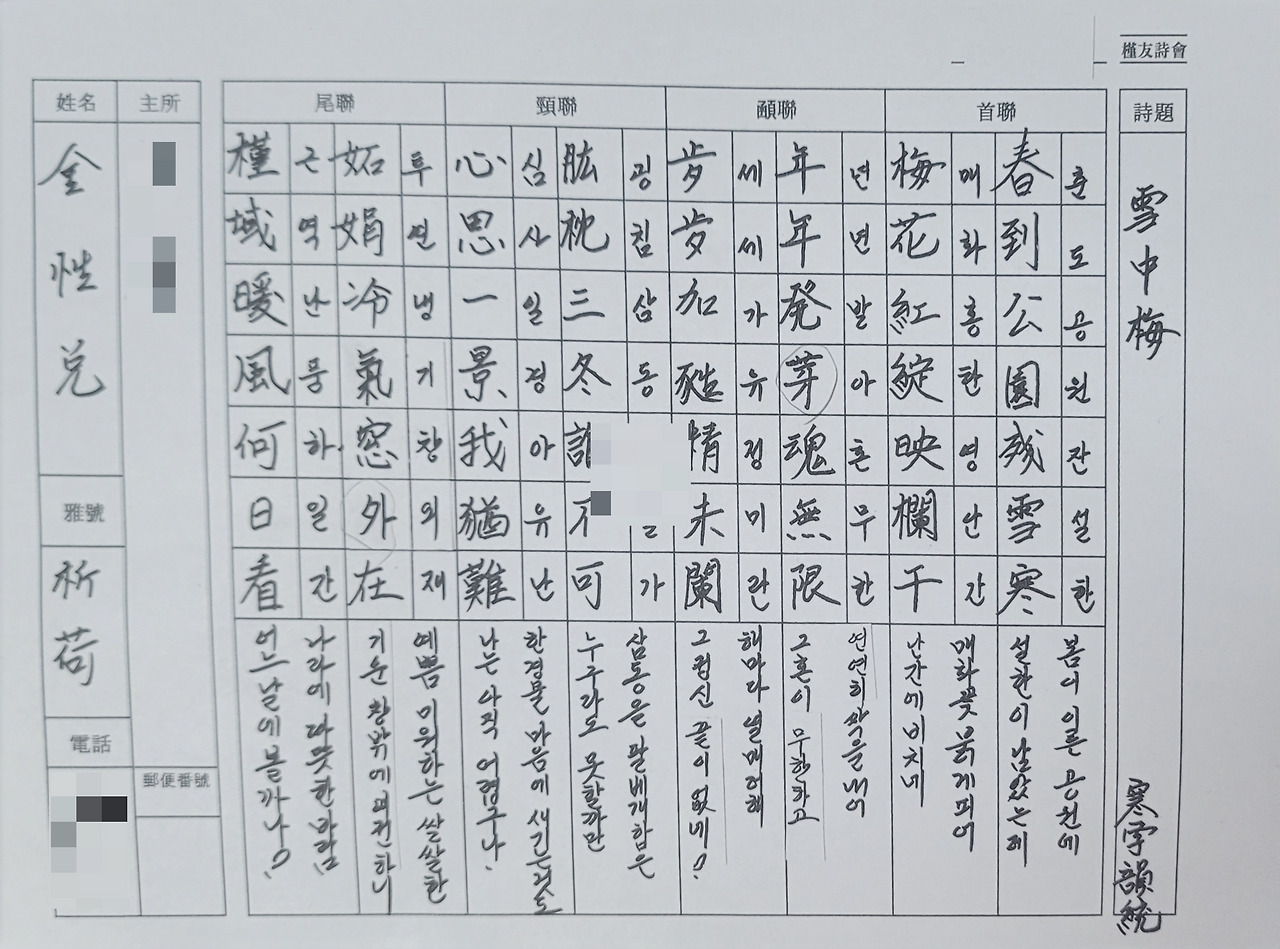 槿友詩會
詩題
雪中梅
寒字韻統
首聯
춘도공원잔설한
春到公園残雪寒
매화홍탄영난간
梅花紅綻映欄干
봄이 이른 공원에
설한이 남았는데
매화꽃 붉게 피어
난간에 비치네
頷聯
년년발아혼무한
年年発芽魂無限
세세가유정미란
歲歲加甤情未闌
연연히 싹을 내어
그 혼이 무한하고
해마다 열매 더해
그 끝이 없네!
頸聯
굉침삼동 가
肱枕三冬 可
심사일경아유난
心思一景我猶難
삼동을 팔베개함은
누구라도 못할까만
한 경물 마음에
나는 아직 어렵구나.
尾聯
투연냉기창외재
妬娟冷氣窓外在
근역난풍하일간
槿域暖風何日看
예쁨 미워하는 쌀쌀한
기운 창밖에 여전하니
나라에 따뜻한 바람
어느 날에 볼까나!
主所
郵便番號
姓名
金性兌
雅號
祈荷
電話